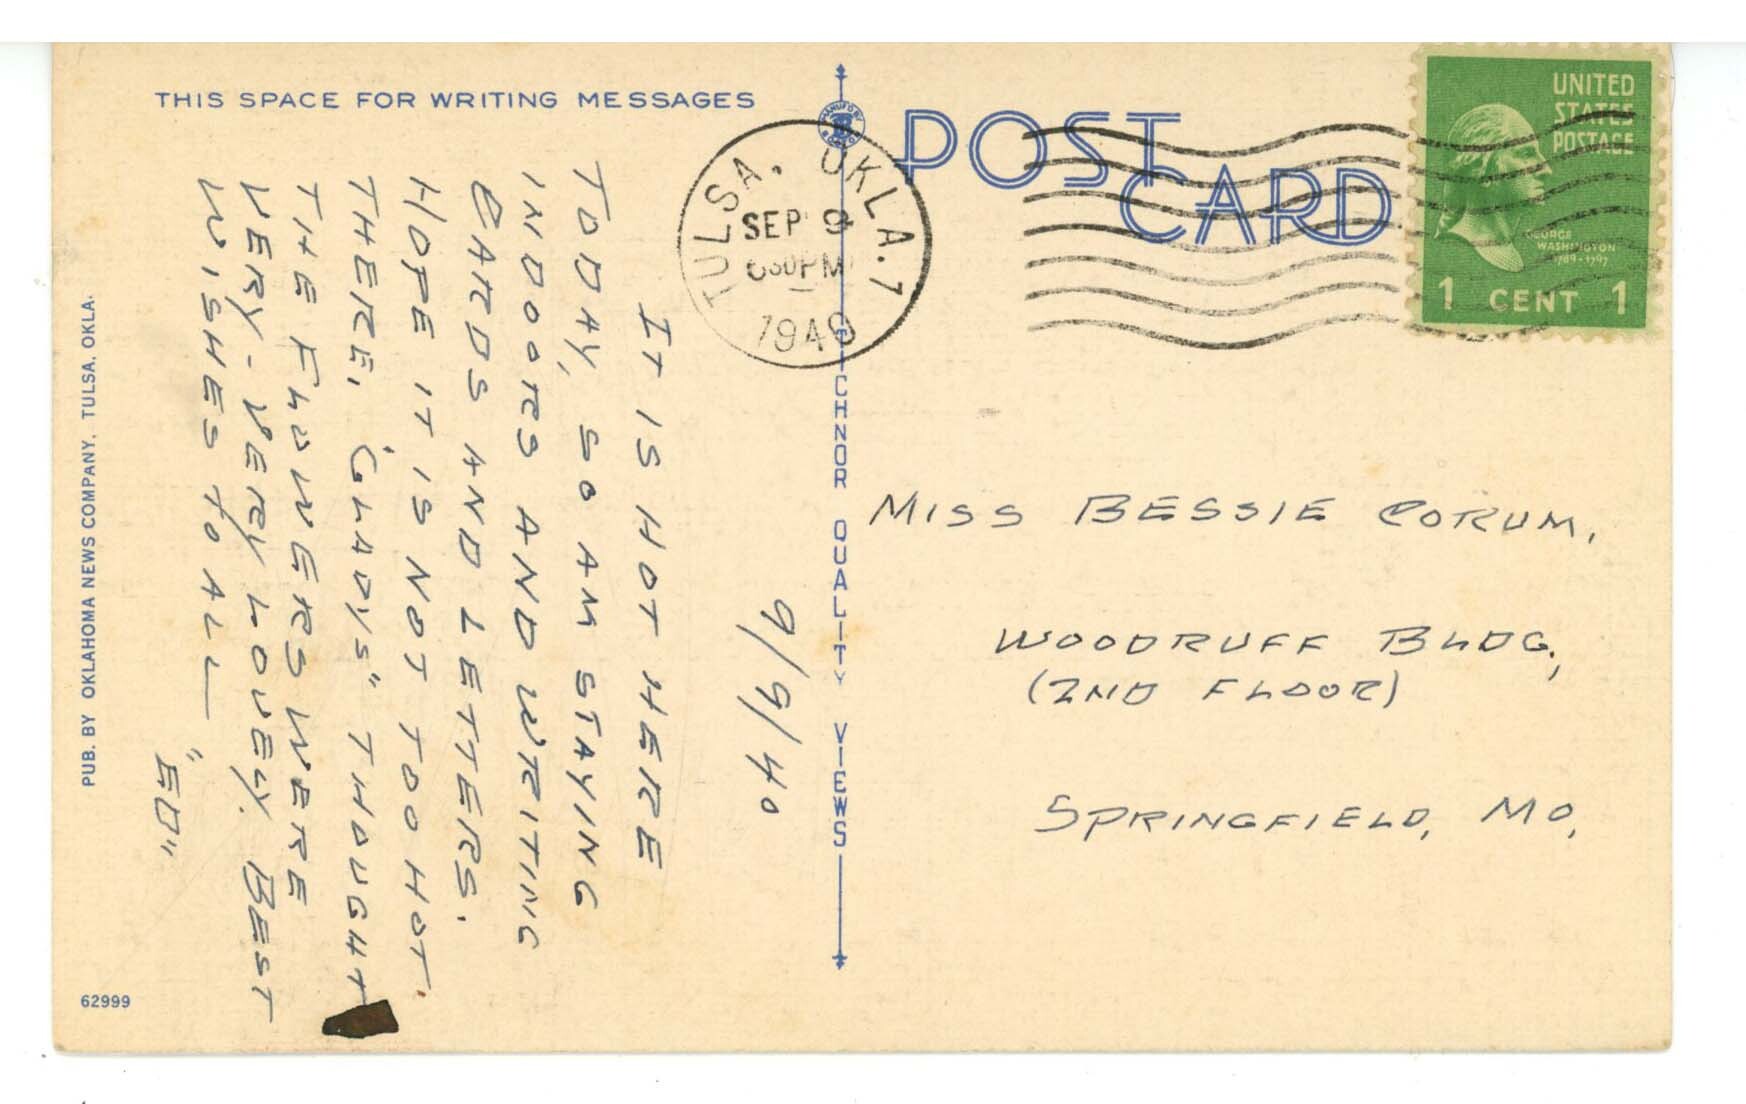 THIS SPACE FOR WRITING MESSAGES
POST
CARD
TULSA, OKLA. 7
SEP 9
630 PM
UNITED
STATES
POSTAGE
GEORGE
WASHINGTON
1789-1797
1 CENT 1
9/9/40
IT IS HOT HERE
TODAY, SO AM STAYING
INDOORS AND WRITING
CARDS AND LETTERS.
HOPE IT IS NOT TOO HOT
THERE, "GLADYS" THOUGHT
THE FLOWERS WERE
VERY-VERY LOVELY. BEST
WISHES TO ALL
"ED"
MISS BESSIE CORUM,
WOODRUFF BLDG.,
(2ND FLOOR)
SPRINGFIELD, MO,
TICHNOR QUALITY VIEWS
PUB. BY OKLAHOMA NEWS COMPANY, TULSA, OKLA.
62999